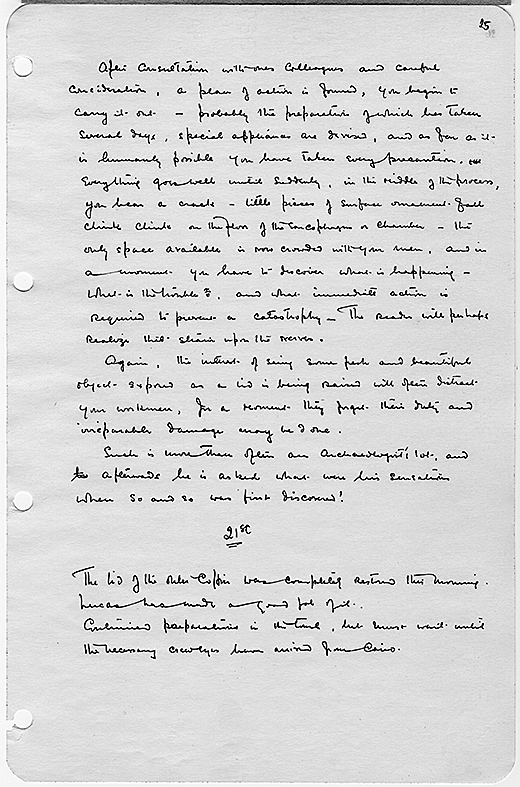 25
After Consultation with ones Colleagues and careful
consideration, a plan of action is formed, you begin to
carry it out – probably the preparation of which has taken
several days, special appliances are devised, and as far as it
is humanly possible you have taken every precaution.
Everything goes well until suddenly, in the middle of the process,
you hear a crack – little pieces of surface ornament fall
clink clink on the floor of the sarcophagus or chamber – the
only space available is now crowded with your men, and in
a moment you have to discover what is happening –
What is the trouble?, and what immediate action is
required to prevent a catastrophy – The reader will perhaps
realize that strain upon the nerves.
Again, the interest of seeing some fresh and beautiful
object exposed as a lid is being raised will often distract
your workmen, for a moment they forget their duty and
irreparable damage may be done.
Such is more than often an Archaeologist's lot, and
afterwards he is asked what were his sensations
when so and so was first discovered!
21st
The lid of the outer Coffin was completely restored this morning.
Lucas has made a good job of it.
Continued preparations in the tomb, but must wait until
the necessary screw eyes have arrived from Cairo.